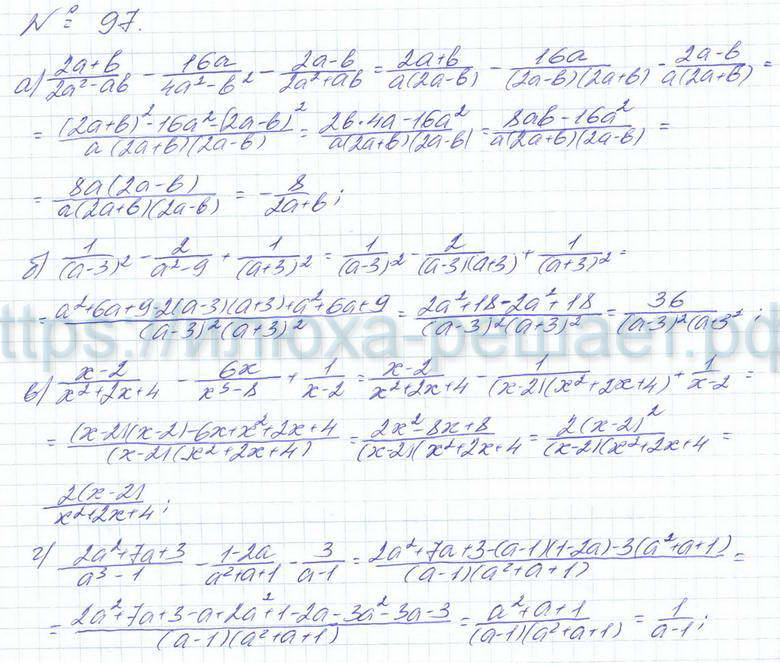 № 97.
а) (2a+b)/(2a²-ab) - 16a/(4a²-b²) - (2a-b)/(2a²+ab) = (2a+b)/(a(2a-b)) - 16a/((2a-b)(2a+b)) - (2a-b)/(a(2a+b)) =
= ((2a+b)²-16a²-(2a-b)²)/(a(2a+b)(2a-b)) = (2b·4a-16a²)/(a(2a+b)(2a-b)) = (8ab-16a²)/(a(2a+b)(2a-b)) =
= 8a(2a-b)/(a(2a+b)(2a-b)) = -8/(2a+b);
б) 1/(a-3)² - 2/(a²-9) + 1/(a+3)² = 1/(a-3)² - 2/((a-3)(a+3)) + 1/(a+3)² =
= (a²+6a+9-2(a-3)(a+3)+a²+6a+9)/((a-3)²(a+3)²) = (2a²+18-2a²+18)/((a-3)²(a+3)²) = 36/((a-3)²(a+3²;
https://йпюха-решает.рф
в) (x-2)/(x²+2x+4) - 6x/(x³-8) + 1/(x-2) = (x-2)/(x²+2x+4) - 1/((x-2)(x²+2x+4)) + 1/(x-2) =
= ((x-2)(x-2)-6x+x²+2x+4)/((x-2)(x²+2x+4)) = (2x²-8x+8)/((x-2)(x²+2x+4 = 2(x-2)²/((x-2)(x²+2x+4 =
2(x-2)/(x²+2x+4);
г) (2a²+7a+3)/(a³-1) - (1-2a)/(a²+a+1) - 3/(a-1) = (2a²+7a+3-(a-1)(1-2a)-3(a²+a+1))/((a-1)(a²+a+1)) =
= (2a²+7a+3-a+2a²+1-2a-3a²-3a-3)/((a-1)(a²+a+1)) = (a²+a+1)/((a-1)(a²+a+1)) = 1/(a-1);